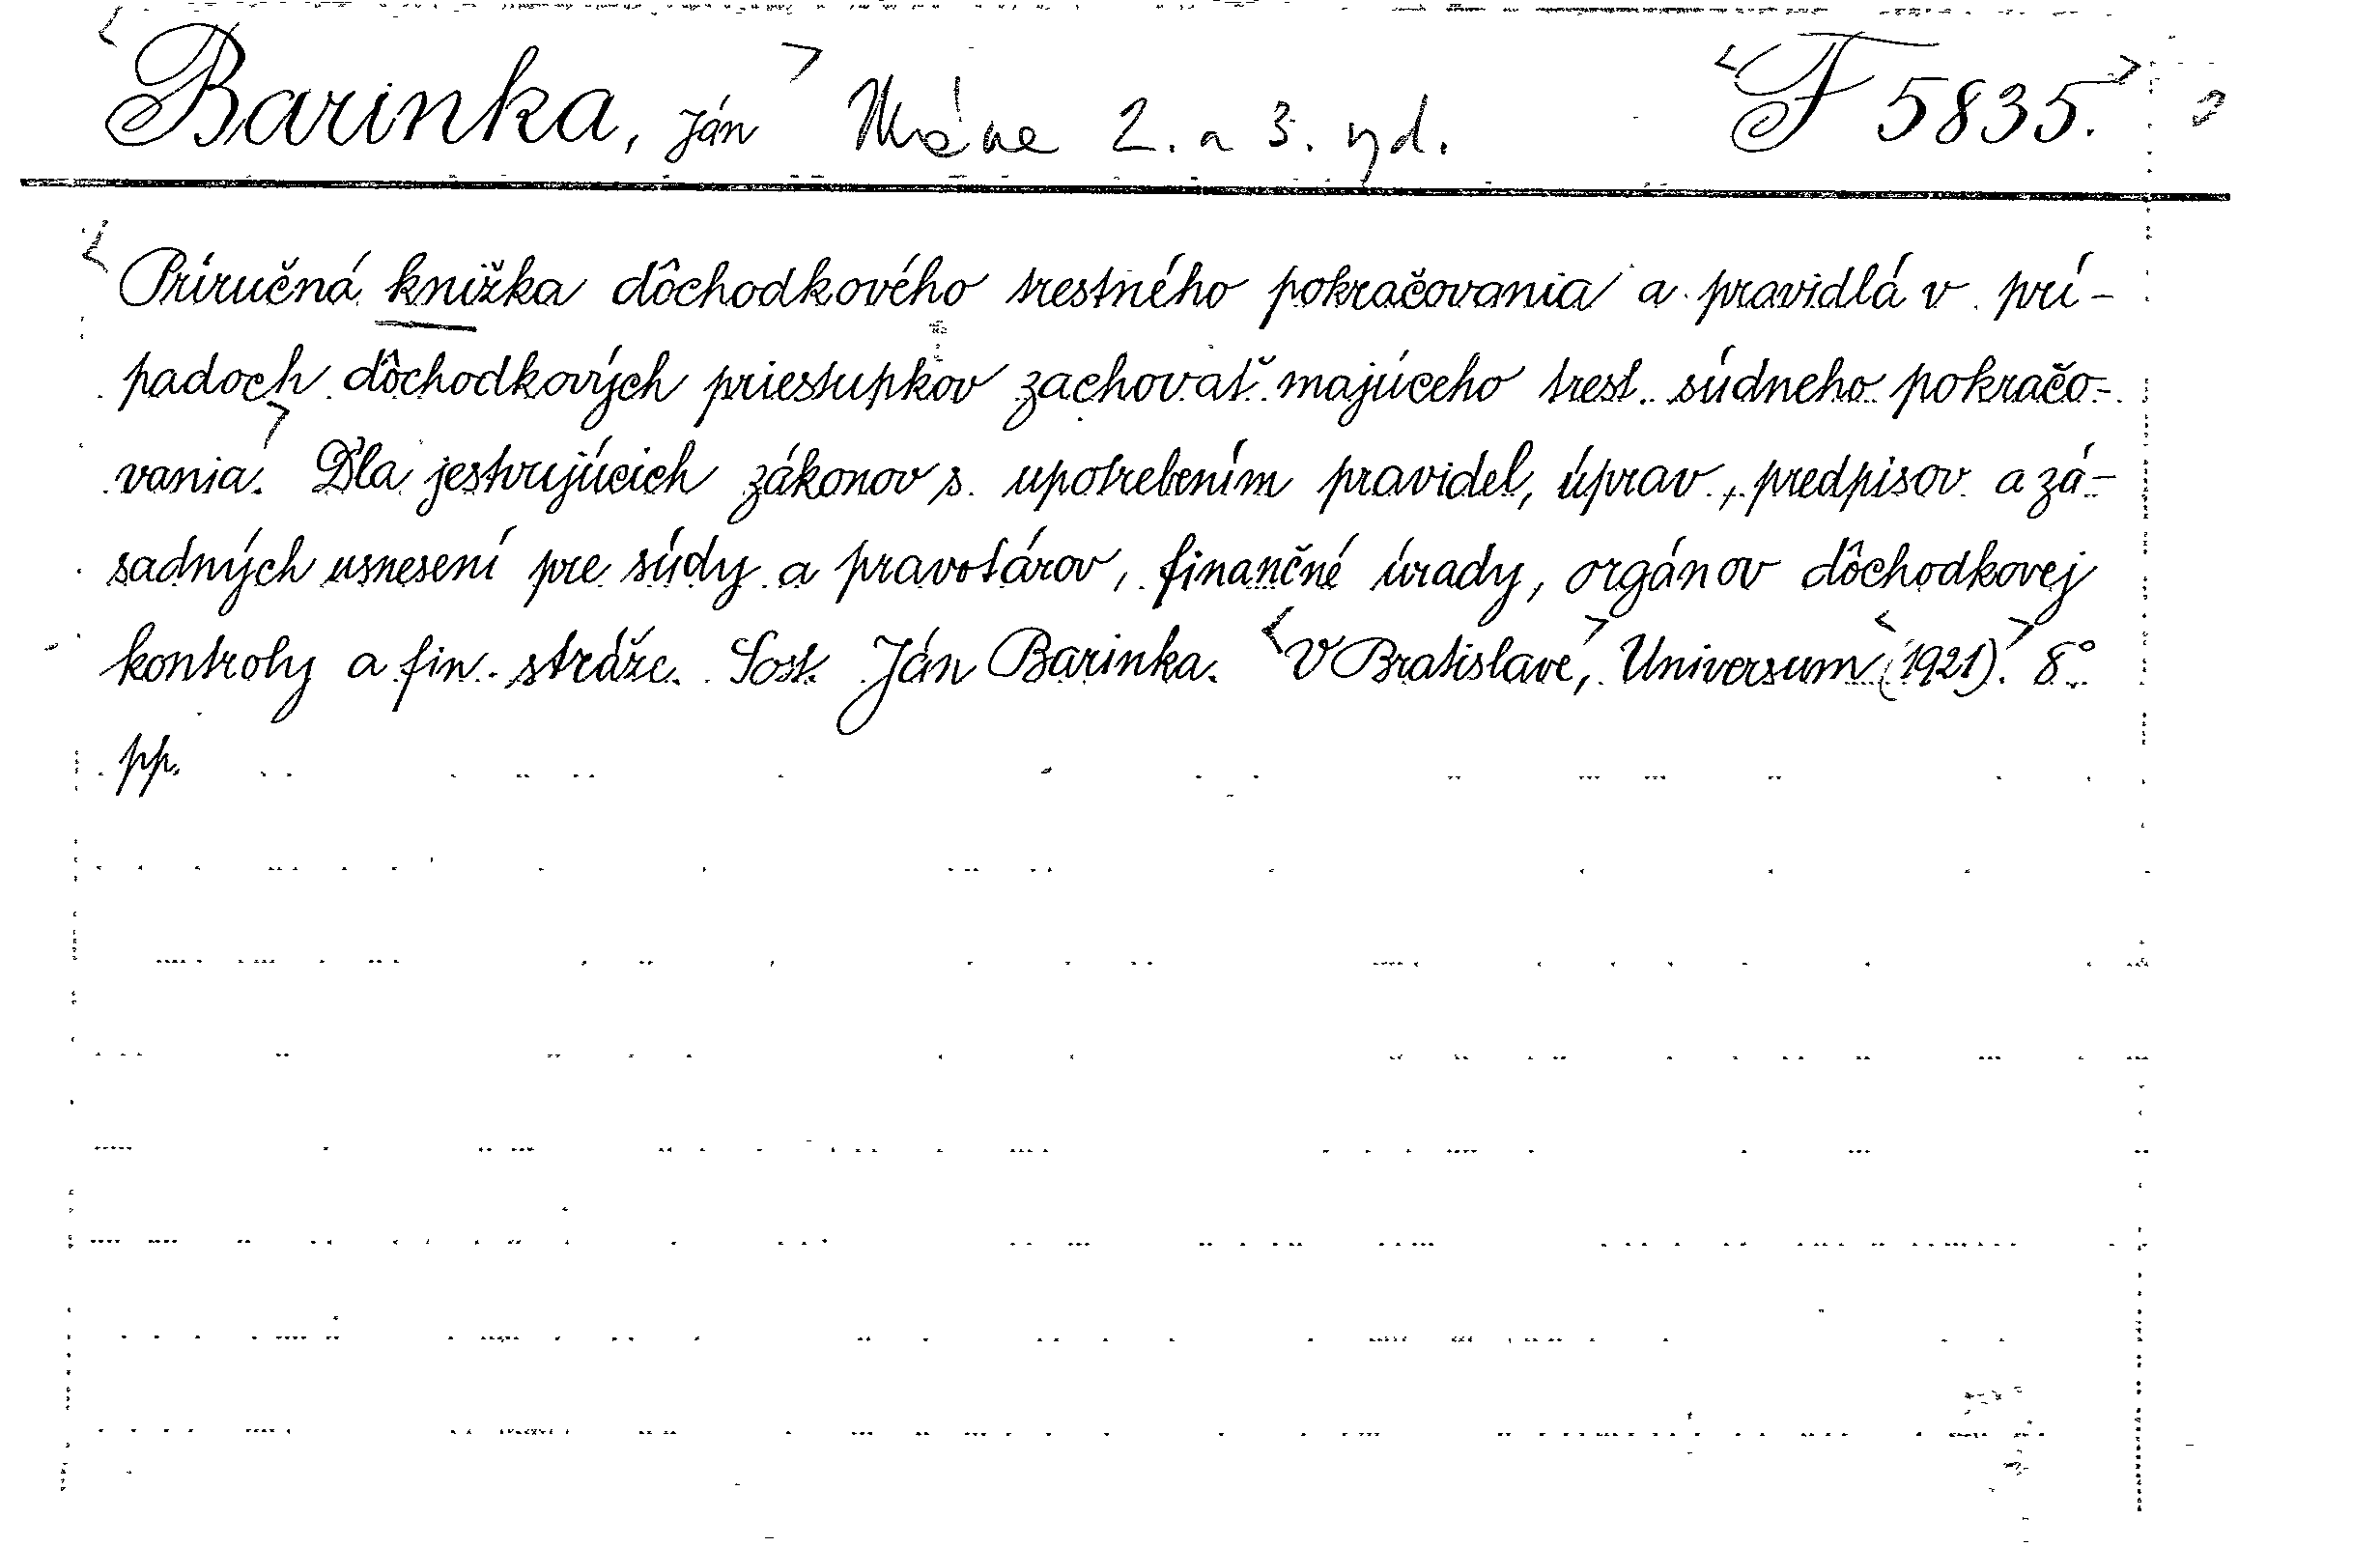 Barinka, Ján Máme 2. a 3. vyd. F 5835.
Príručná knižka dôchodkového trestného pokračovania a pravidlá v prí-
padoch dôchodkových priestupkov zachovať majúceho trest. súdneho pokračo-
vania. Dla jestvujúcich zákonov s upotrebením pravidel, úprav, predpisov a zá-
sadných usnesení pre súdy a pravotárov, finančné úrady, orgánov dôchodkovej
kontroly a fin. stráže. Sost. Ján Barinka. V Bratislave, Universum (1921). 8°
pp.